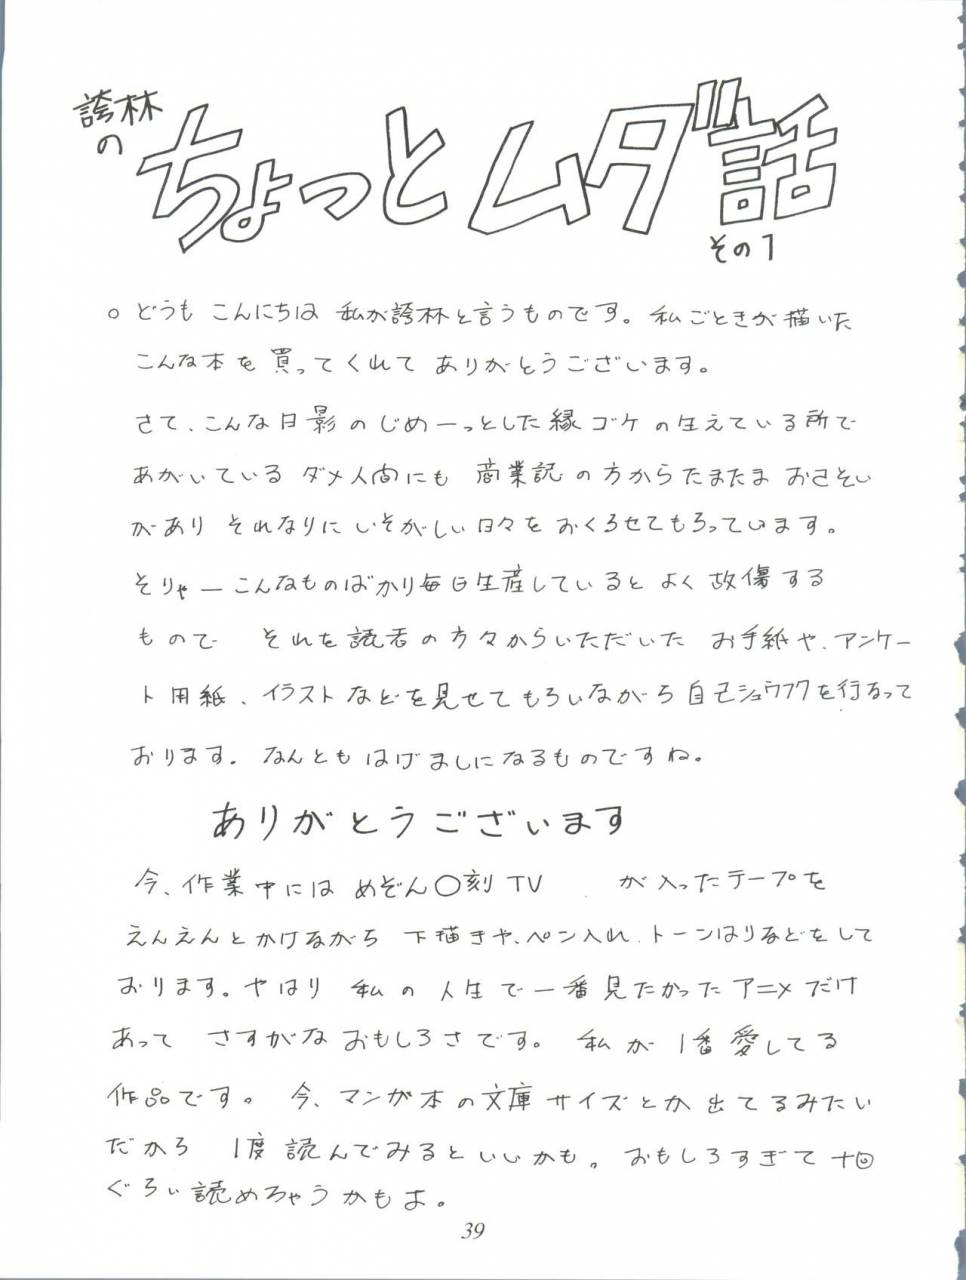 誇林
の
ちょっとムダ話
その1
○ どうも こんにちは 私が誇林と言うものです。私ごときが描いた
こんな本を買ってくれて ありがとうございます。
さて、こんな日影のじめーっとした縁ゴケの生えている所で
あがいている ダメ人間にも 商業誌の方からたまたま おさそい
があり それなりに いそがしい日々を おくらせてもらっています。
そりゃー こんなものばかり毎日生産していると よく故傷する
もので それを読者の方々からいただいた お手紙や、アンケー
ト用紙、イラストなどを見せてもらいながら 自己シュウフクを行なって
おります。なんとも はげましになるものですね。
ありがとうございます
今、作業中には めぞん〇刻TV が入ったテープを
えんえんとかけながら 下描きや、ペン入れ、トーンはりなどをして
おります。やはり 私の人生で一番見たかったアニメだけ
あって さすがなおもしろさです。私が1番愛してる
作品です。今、マンガ本の文庫サイズとか出てるみたい
だから 1度読んでみるといいかも。おもしろすぎて十回
ぐらい読めちゃうかもよ。
39